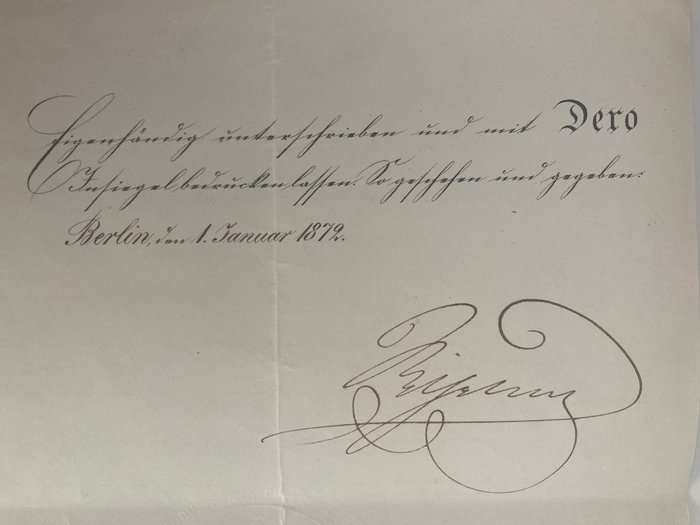 Eigenhändig unterschrieben und mit Dero
Insiegel bedrucken lassen. So geschehen und gegeben:
Berlin, den 1. Januar 1872.
Wilhelm